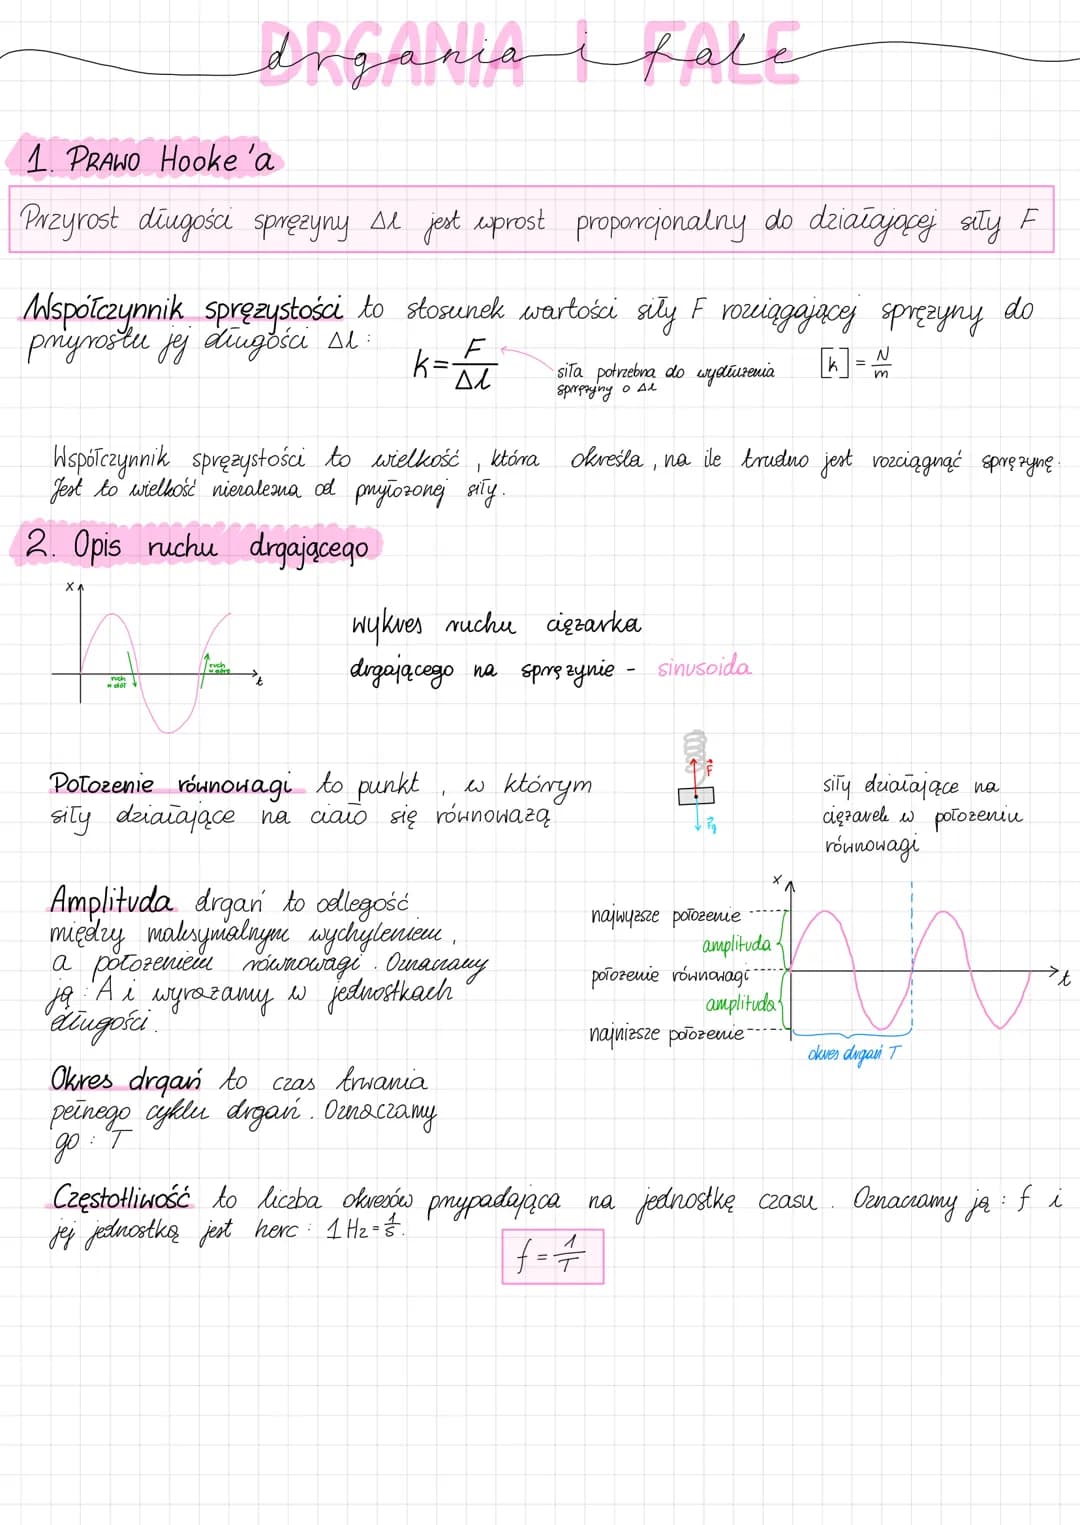 DRGANIA I FALE
drgania i fale
1. PRAWO Hooke'a
Przyrost długości sprężyny Δl jest wprost proporcjonalny do działającej siły F
Współczynnik sprężystości to stosunek wartości siły F rozciągającej sprężyny do
przyrostu jej długości Δl:
k = F/Δl
siła potrzebna do wydłużenia
sprężyny o Δl
[k] = N/m
Współczynnik sprężystości to wielkość, która określa, na ile trudno jest rozciągnąć sprężynę.
Jest to wielkość niezależna od przyłożonej siły.
2. Opis ruchu drgającego
x
ruch
w dół
ruch
w górę
t
wykres ruchu ciężarka
drgającego na sprężynie - sinusoida
Położenie równowagi to punkt, w którym
siły działające na ciało się równoważą
F
Fg
siły działające na
ciężarek w położeniu
równowagi
Amplituda drgań to odległość
między maksymalnym wychyleniem,
a położeniem równowagi. Oznaczamy
ją: A i wyrażamy w jednostkach
długości.
x
najwyższe położenie
amplituda
położenie równowagi
amplituda
najniższe położenie
t
okres drgań T
Okres drgań to czas trwania
pełnego cyklu drgań. Oznaczamy
go: T
Częstotliwość to liczba okresów przypadająca na jednostkę czasu. Oznaczamy ją: f i
jej jednostką jest herc: 1 Hz = 1/s.
f = 1/T